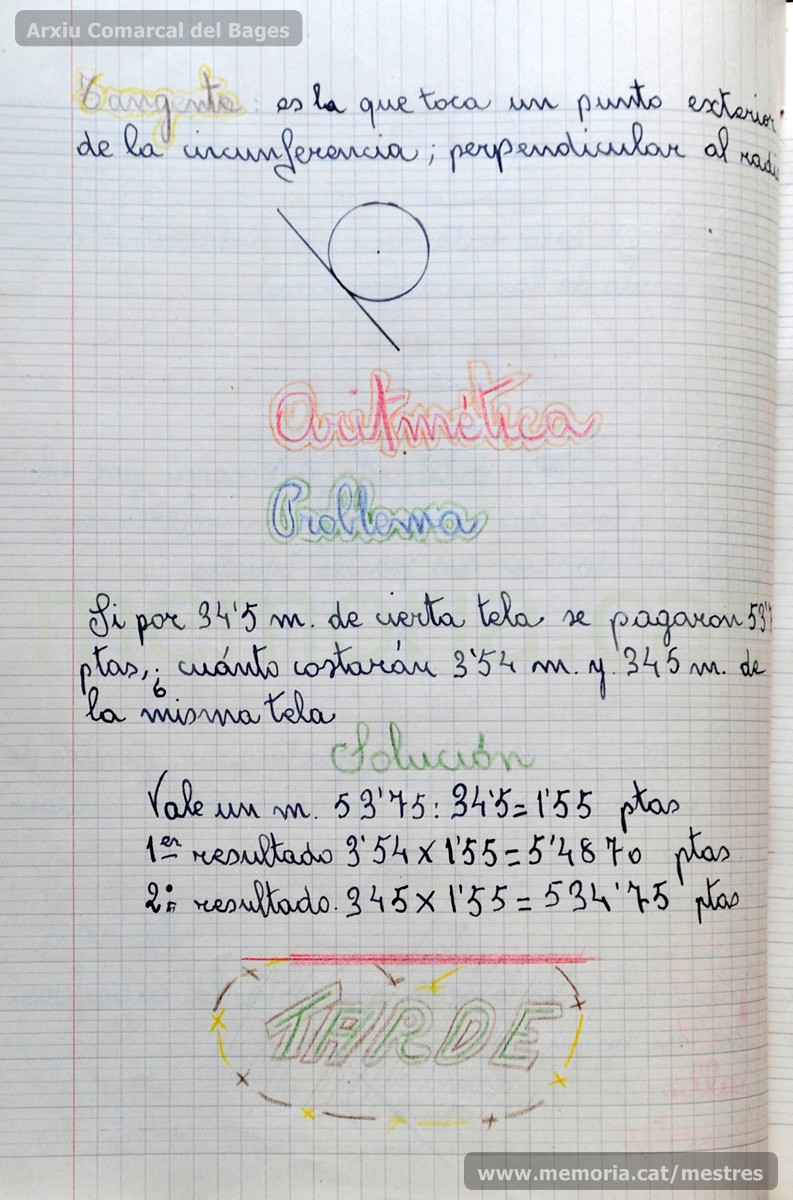 Arxiu Comarcal del Bages
Tangente: es la que toca un punto exterior
de la circunferencia; perpendicular al radi
Aritmética
Problema
Si por 34'5 m. de cierta tela se pagaron 53'7
ptas, ¿cuánto costarán 3'54 m. y 345 m. de
la misma tela
Solución
Vale un m. 53'75 : 34'5 = 1'55 ptas
1er resultado 3'54 x 1'55 = 5'4870 ptas
2º resultado. 345 x 1'55 = 534'75 ptas
TARDE
www.memoria.cat/mestres